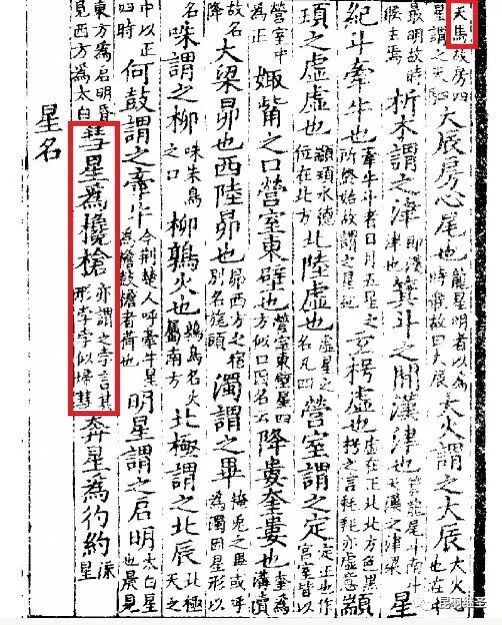 天馬故房四星謂之天駟大辰房心尾也龍星明者以為時候故曰大辰大火謂之大辰大火心也在中
最明故時候主焉析木謂之津即漢津也箕斗之間漢津也箕龍尾斗南斗天漢之津梁星
紀斗牽牛也牽牛斗者日月五星之所終始故謂之星紀玄枵虛也虛在正北北方色黑枵之言耗耗亦虛意顓
頊之虛虛也顓頊水德位在北方北陸虛也虛星之名凡四營室謂之定定正也作宮室皆以
營室中為正娵觜之口營室東壁也營室東壁星四方似口因名云降婁奎婁也奎為溝瀆
故名降大梁昴也西陸昴也昴西方之宿別名旄頭濁謂之畢掩兔之畢或呼為濁因星形以
名咮謂之柳咮朱鳥之口柳鶉火也鶉鳥名火屬南方北極謂之北辰北極天之
中以正四時何鼓謂之牽牛今荊楚人呼牽牛星為檐鼓檐者荷也明星謂之启明太白星也晨見
東方為启明昏見西方為太白彗星為欃槍亦謂之孛言其形孛孛似埽彗奔星為彴約流星
星名